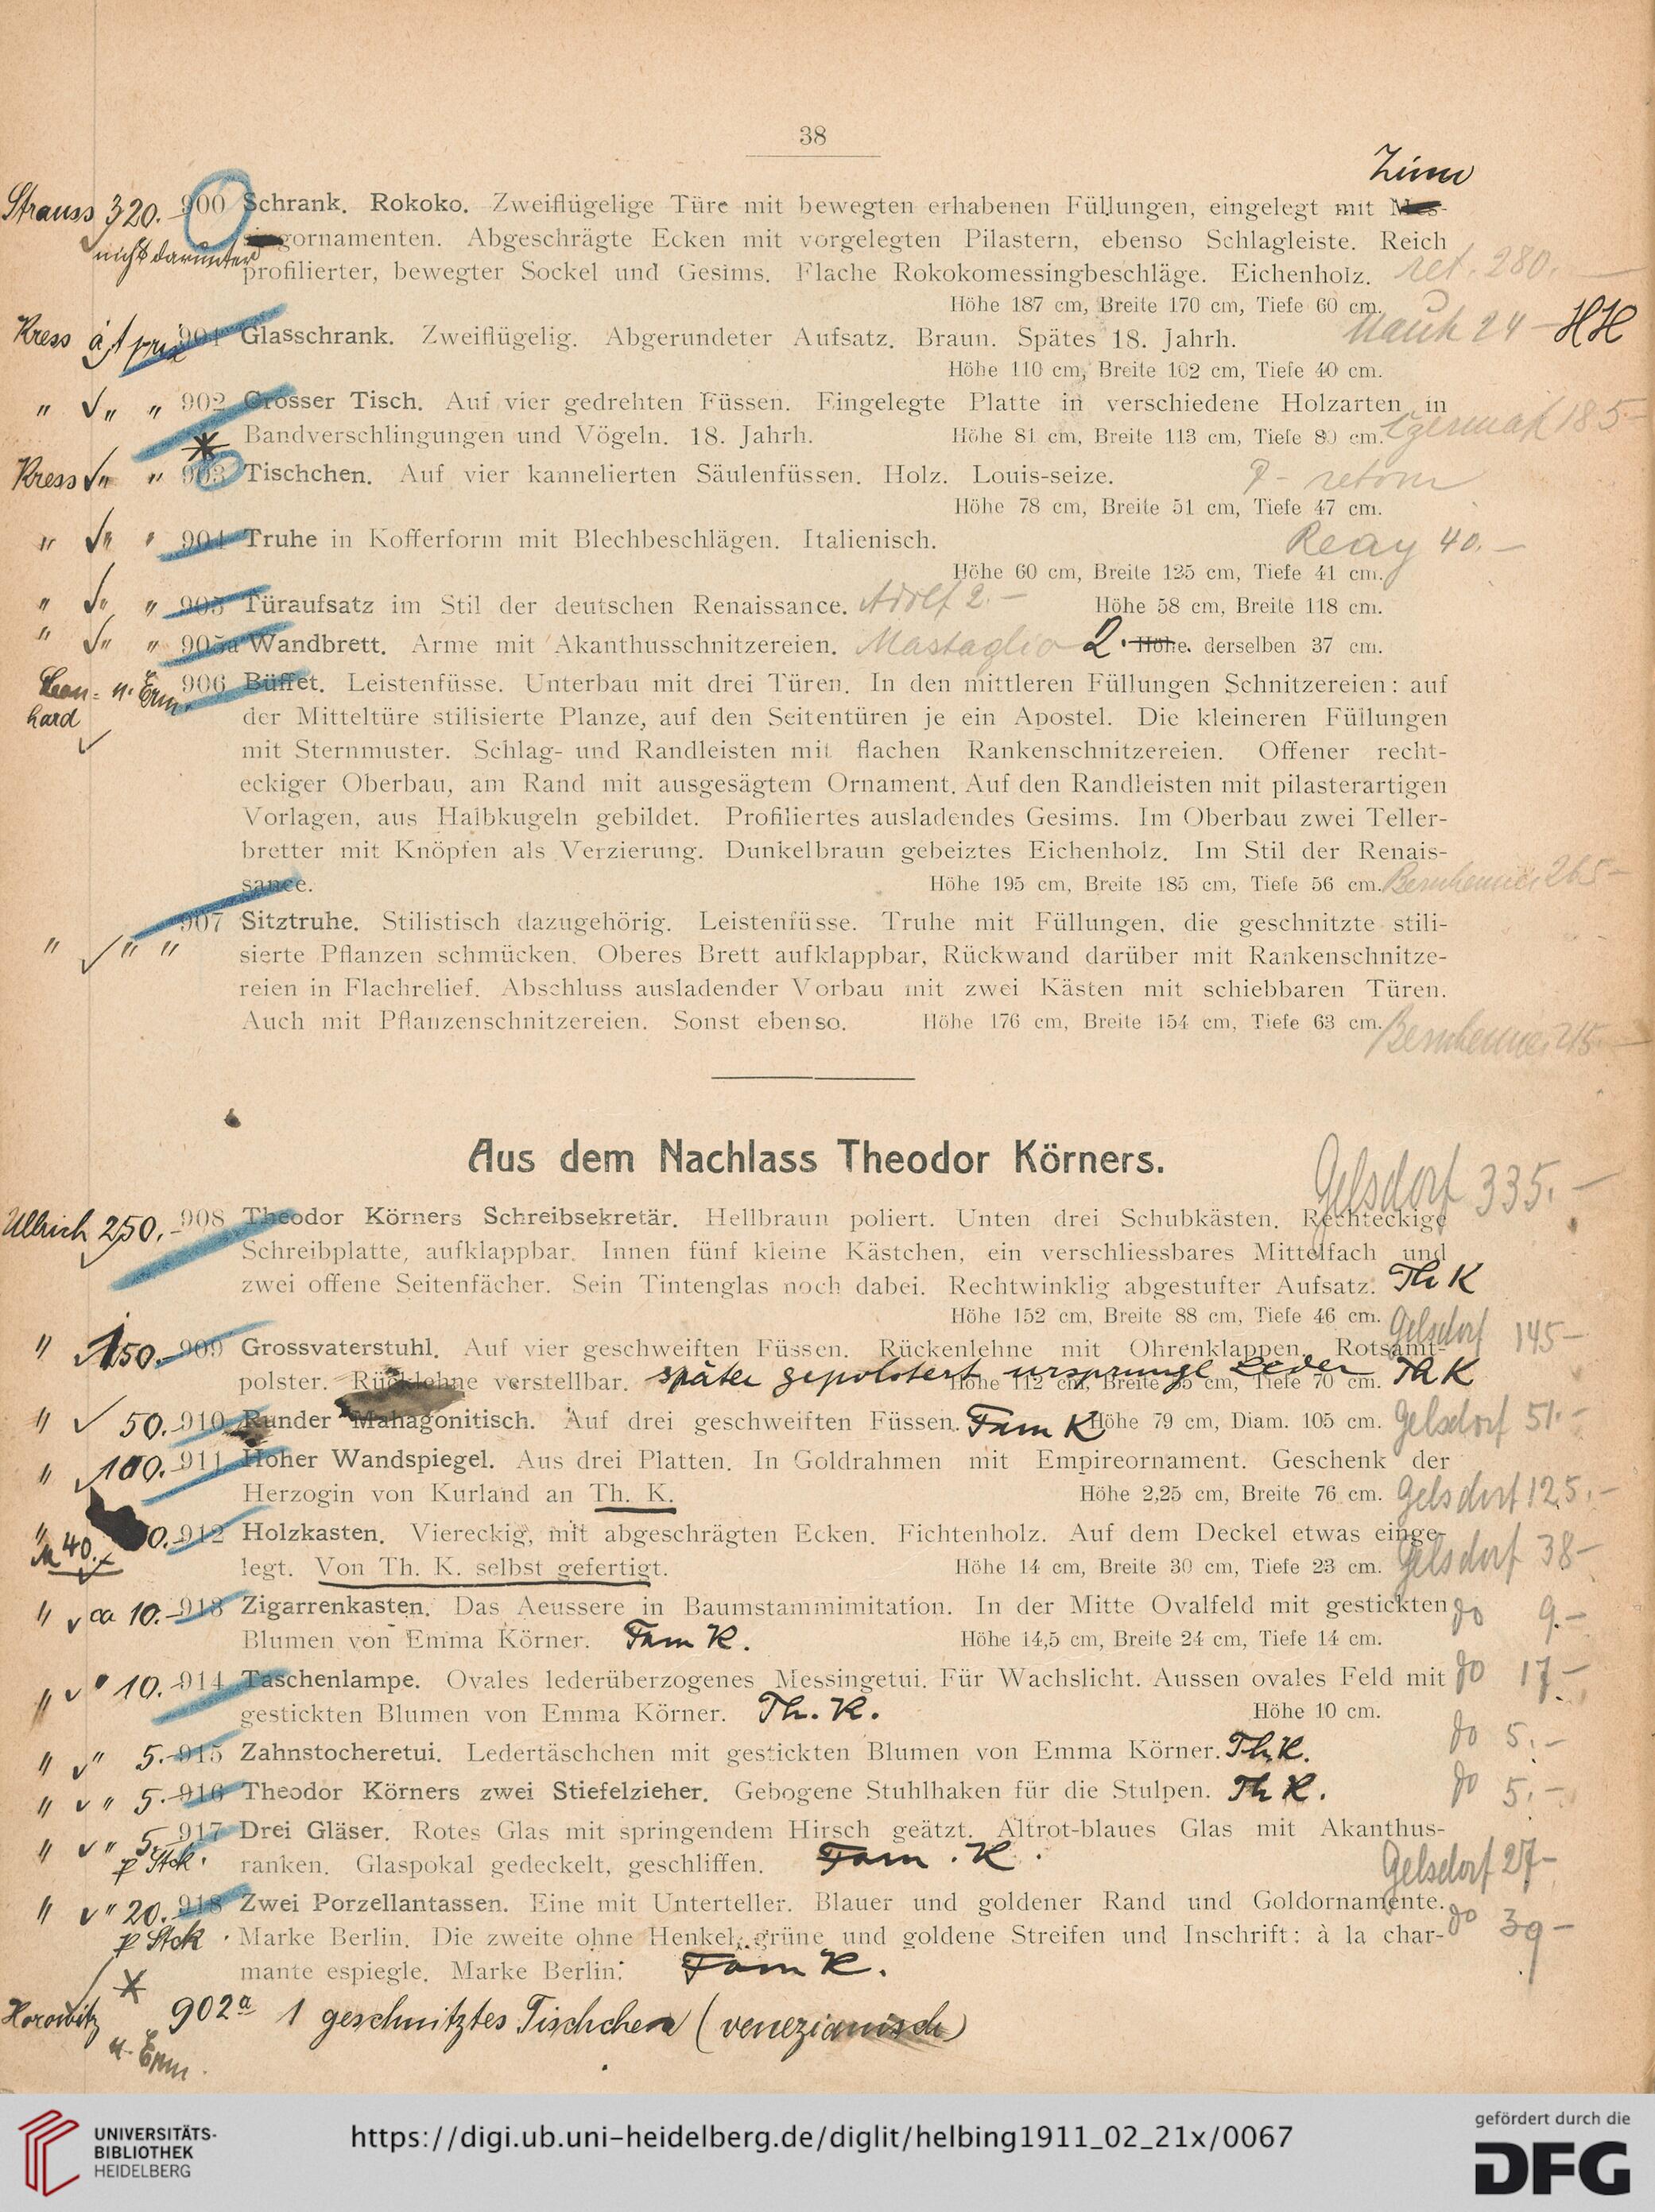 38
Zinn
Strauss 320.- 900 Schrank. Rokoko. Zweiflügelige Türe mit bewegten erhabenen Füllungen, eingelegt mit
gornamenten. Abgeschrägte Ecken mit vorgelegten Pilastern, ebenso Schlagleiste. Reich
nicht darunter
profilierter, bewegter Sockel und Gesims. Flache Rokokomessingbeschläge. Eichenholz. ret. 280.-
Höhe 187 cm, Breite 170 cm, Tiefe 60 cm.
Kress à t prix 901 Glasschrank. Zweiflügelig. Abgerundeter Aufsatz. Braun. Spätes 18. Jahrh. 24 - HH
Höhe 110 cm, Breite 102 cm, Tiefe 40 cm.
" √" " 902 Grosser Tisch. Auf vier gedrehten Füssen. Eingelegte Platte in verschiedene Holzarten in
Bandverschlingungen und Vögeln. 18. Jahrh. Höhe 81 cm, Breite 113 cm, Tiefe 80 cm. Czermak 185-
Kress √" " 903 Tischchen. Auf vier kannelierten Säulenfüssen. Holz. Louis-seize. retour
Höhe 78 cm, Breite 51 cm, Tiefe 47 cm.
" √" " 904 Truhe in Kofferform mit Blechbeschlägen. Italienisch. Reay 40.-
Höhe 60 cm, Breite 125 cm, Tiefe 41 cm.
" √" " 905 Türaufsatz im Stil der deutschen Renaissance. Adolf 2.- Höhe 58 cm, Breite 118 cm.
" √" " 905a Wandbrett. Arme mit Akanthusschnitzereien. Mastaglio 2. Höhe. derselben 37 cm.
Leon= u. Erm. 906 Büffet. Leistenfüsse. Unterbau mit drei Türen. In den mittleren Füllungen Schnitzereien: auf
hard der Mitteltüre stilisierte Planze, auf den Seitentüren je ein Apostel. Die kleineren Füllungen
mit Sternmuster. Schlag- und Randleisten mit flachen Rankenschnitzereien. Offener recht-
eckiger Oberbau, am Rand mit ausgesägtem Ornament. Auf den Randleisten mit pilasterartigen
Vorlagen, aus Halbkugeln gebildet. Profiliertes ausladendes Gesims. Im Oberbau zwei Teller-
bretter mit Knöpfen als Verzierung. Dunkelbraun gebeiztes Eichenholz. Im Stil der Renais-
sance. Höhe 195 cm, Breite 185 cm, Tiefe 56 cm. Bernheimer 265-
907 Sitztruhe. Stilistisch dazugehörig. Leistenfüsse. Truhe mit Füllungen, die geschnitzte stili-
" √" " sierte Pflanzen schmücken. Oberes Brett aufklappbar, Rückwand darüber mit Rankenschnitze-
reien in Flachrelief. Abschluss ausladender Vorbau mit zwei Kästen mit schiebbaren Türen.
Auch mit Pflanzenschnitzereien. Sonst ebenso. Höhe 176 cm, Breite 154 cm, Tiefe 63 cm.
Bernheimer 215.-
Aus dem Nachlass Theodor Körners.
Gelsdorf 335.-
Ullrich 250.- 908 Theodor Körners Schreibsekretär. Hellbraun poliert. Unten drei Schubkästen. Rechteckige
Schreibplatte, aufklappbar. Innen fünf kleine Kästchen, ein verschliessbares Mittelfach und
zwei offene Seitenfächer. Sein Tintenglas noch dabei. Rechtwinklig abgestufter Aufsatz. Th K
Höhe 152 cm, Breite 88 cm, Tiefe 46 cm.
" 150.- 909 Grossvaterstuhl. Auf vier geschweiften Füssen. Rückenlehne mit Ohrenklappen. Rotsamt- Gelsdorf 145-
polster. Rücklehne verstellbar. später gepolstert ursprüngl Leder Höhe 112 cm, Breite cm, Tiefe 70 cm. Th K
" √ 50.- 910 Runder Mahagonitisch. Auf drei geschweiften Füssen. Fam K Höhe 79 cm, Diam. 105 cm. Gelsdorf 51.-
" 100.- 911 Hoher Wandspiegel. Aus drei Platten. In Goldrahmen mit Empireornament. Geschenk der
Herzogin von Kurland an Th. K. Höhe 2,25 cm, Breite 76 cm. Gelsdorf 125.-
" 0.- 912 Holzkasten. Viereckig, mit abgeschrägten Ecken. Fichtenholz. Auf dem Deckel etwas einge-
M 40.- legt. Von Th. K. selbst gefertigt. Höhe 14 cm, Breite 30 cm, Tiefe 23 cm. Gelsdorf 38-
" √ ca 10.- 913 Zigarrenkasten. Das Aeussere in Baumstammimitation. In der Mitte Ovalfeld mit gestickten do 9.-
Blumen von Emma Körner. Fam K. Höhe 14,5 cm, Breite 24 cm, Tiefe 14 cm.
" √ " 10.- 914 Taschenlampe. Ovales lederüberzogenes Messingetui. Für Wachslicht. Aussen ovales Feld mit do 17.-
gestickten Blumen von Emma Körner. Th. K. Höhe 10 cm.
" √" 5.- 915 Zahnstocheretui. Ledertäschchen mit gestickten Blumen von Emma Körner. Th K. do 5.-
" √ " 5.- 916 Theodor Körners zwei Stiefelzieher. Gebogene Stuhlhaken für die Stulpen. Th K. do 5.-
" √" 5.- 917 Drei Gläser. Rotes Glas mit springendem Hirsch geätzt. Altrot-blaues Glas mit Akanthus-
p Stck. ranken. Glaspokal gedeckelt, geschliffen. Fam. K. Gelsdorf 27-
" √" 20.- 918 Zwei Porzellantassen. Eine mit Unterteller. Blauer und goldener Rand und Goldornamente.
p Stck Marke Berlin. Die zweite ohne Henkel, grüne und goldene Streifen und Inschrift: à la char- do 39-
mante espiegle. Marke Berlin. Fam K.
Horowitz 902a 1 geschnitztes Tischchen (venezianisch)
u. Erm.
UNIVERSITÄTS-
BIBLIOTHEK
HEIDELBERG
https://digi.ub.uni-heidelberg.de/diglit/helbing1911_02_21x/0067
gefördert durch die
DFG